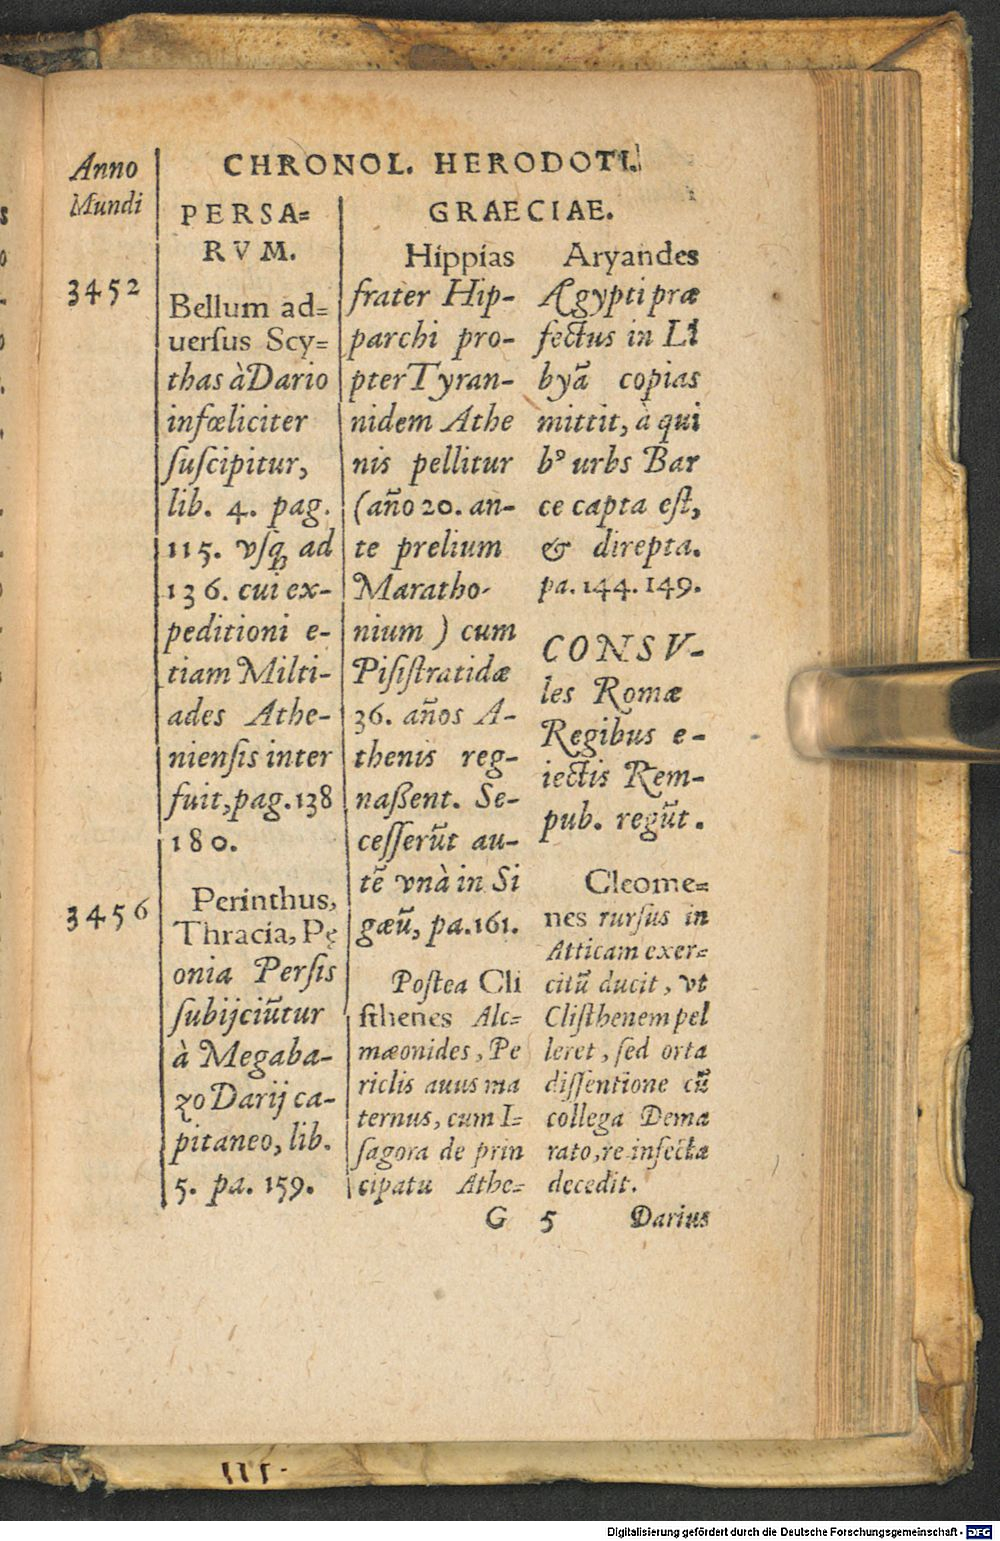 CHRONOL. HERODOTI.
Anno
Mundi
PERSA=
RVM.
3452
Bellum ad=
uersus Scy=
thas à Dario
infœliciter
suscipitur,
lib. 4. pag.
115. vsq; ad
136. cui ex-
peditioni e-
tiam Milti-
ades Athe-
niensis inter
fuit, pag. 138
180.
3456
Perinthus,
Thracia, Pę
onia Persis
subijciũtur
à Megaba-
zo Darij ca-
pitaneo, lib.
5. pa. 159.
GRAECIAE.
Hippias
frater Hip-
parchi pro-
pter Tyran-
nidem Athe
nis pellitur
(año 20. an-
te prelium
Maratho-
nium ) cum
Pisistratidæ
36. años A-
thenis reg-
naßent. Se-
cesserũt au-
tẽ vnà in Si
gæũ, pa. 161.
Postea Cli
sthenes Alc=
mæonides, Pe
riclis auus ma
ternus, cum I=
sagora de prin
cipatu Athe=
Aryandes
Ægypti præ
fectus in Li
byã copias
mittit, à qui
bꝰ urbs Bar
ce capta est,
& direpta.
pa. 144. 149.
CONSV-
les Romæ
Regibus e-
iectis Rem-
pub. regũt.
Cleome=
nes rursus in
Atticam exer=
citũ ducit, vt
Clisthenem pel
leret, sed orta
dissentione cũ
collega Dema
rato, re infecta
decedit.
G 5 Darius
Digitalisierung gefördert durch die Deutsche Forschungsgemeinschaft - DFG